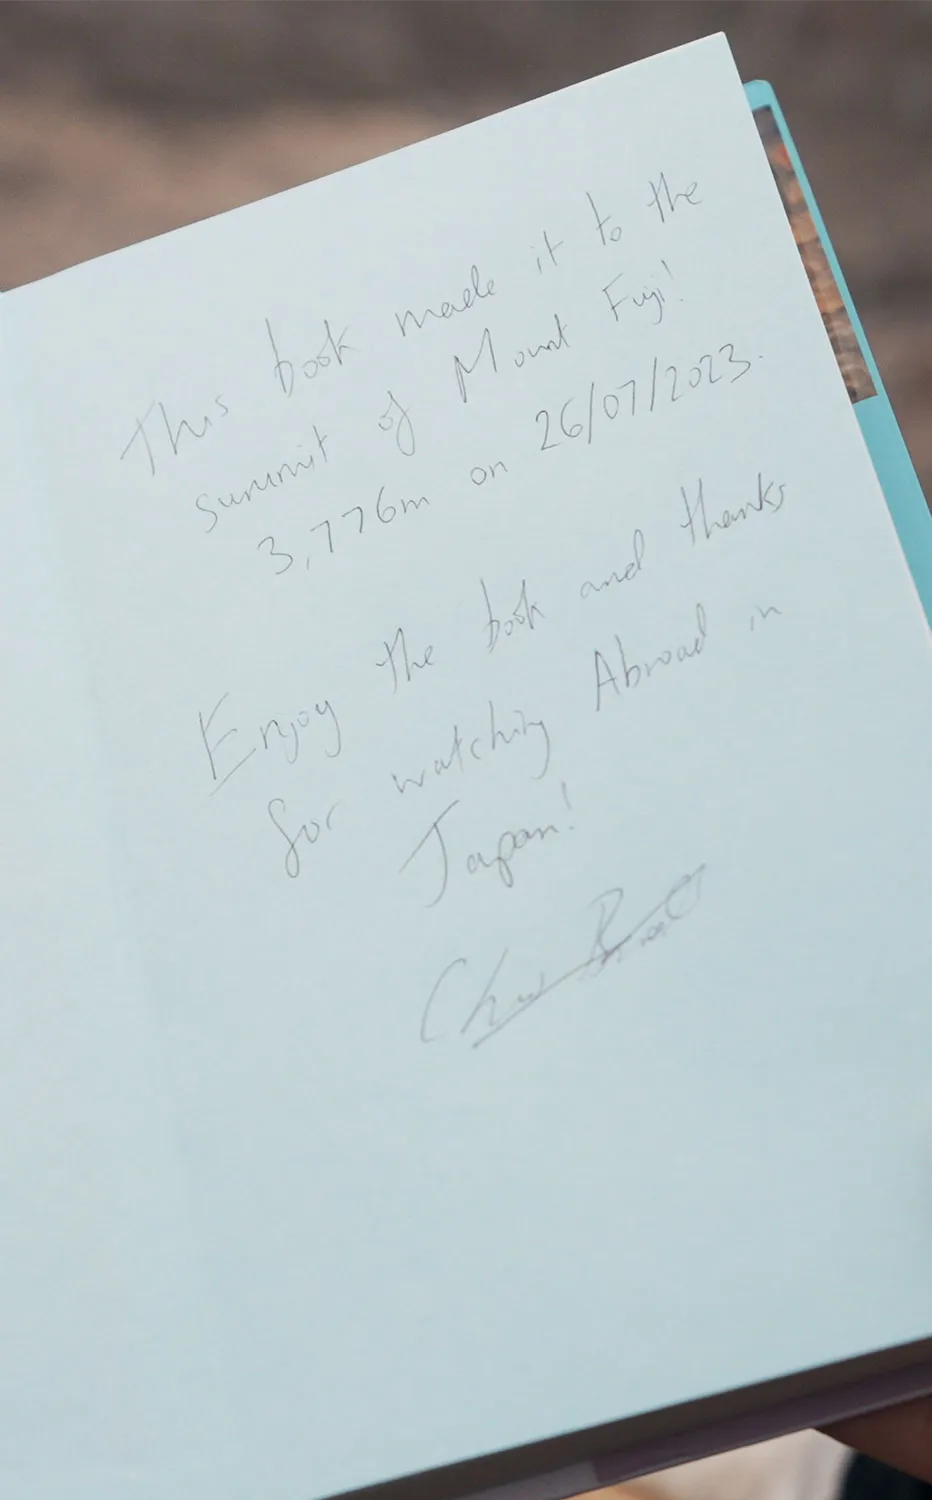 This book made it to the
summit of Mount Fuji!
3,776m on 26/07/2023.
Enjoy the book and thanks
for watching Abroad in
Japan!
Chris Broad